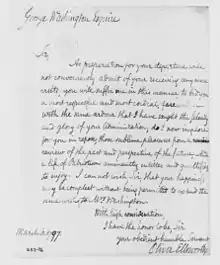 George Washington Esquire
Sir,
As preparation for your departure will
not conveniently admit of your receiving any more
visits you will suffer me in this manner to bid you
a most respectful and most cordial farewell
with the same ardour that I have sought the felicity
and glory of your administration, do I now implore
for you in repose those sublime pleasures from a
review of the past and perspective of the future,
a life of Patriotism
enjoy. I can not wish Sir, that your happiness
may be compleat without being permitted to extend the
same wish to Mrs Washington.
With high consideration
I have the honor to be, Sir
your obedient humble Servant
March 97.
Oliver Ellsworth